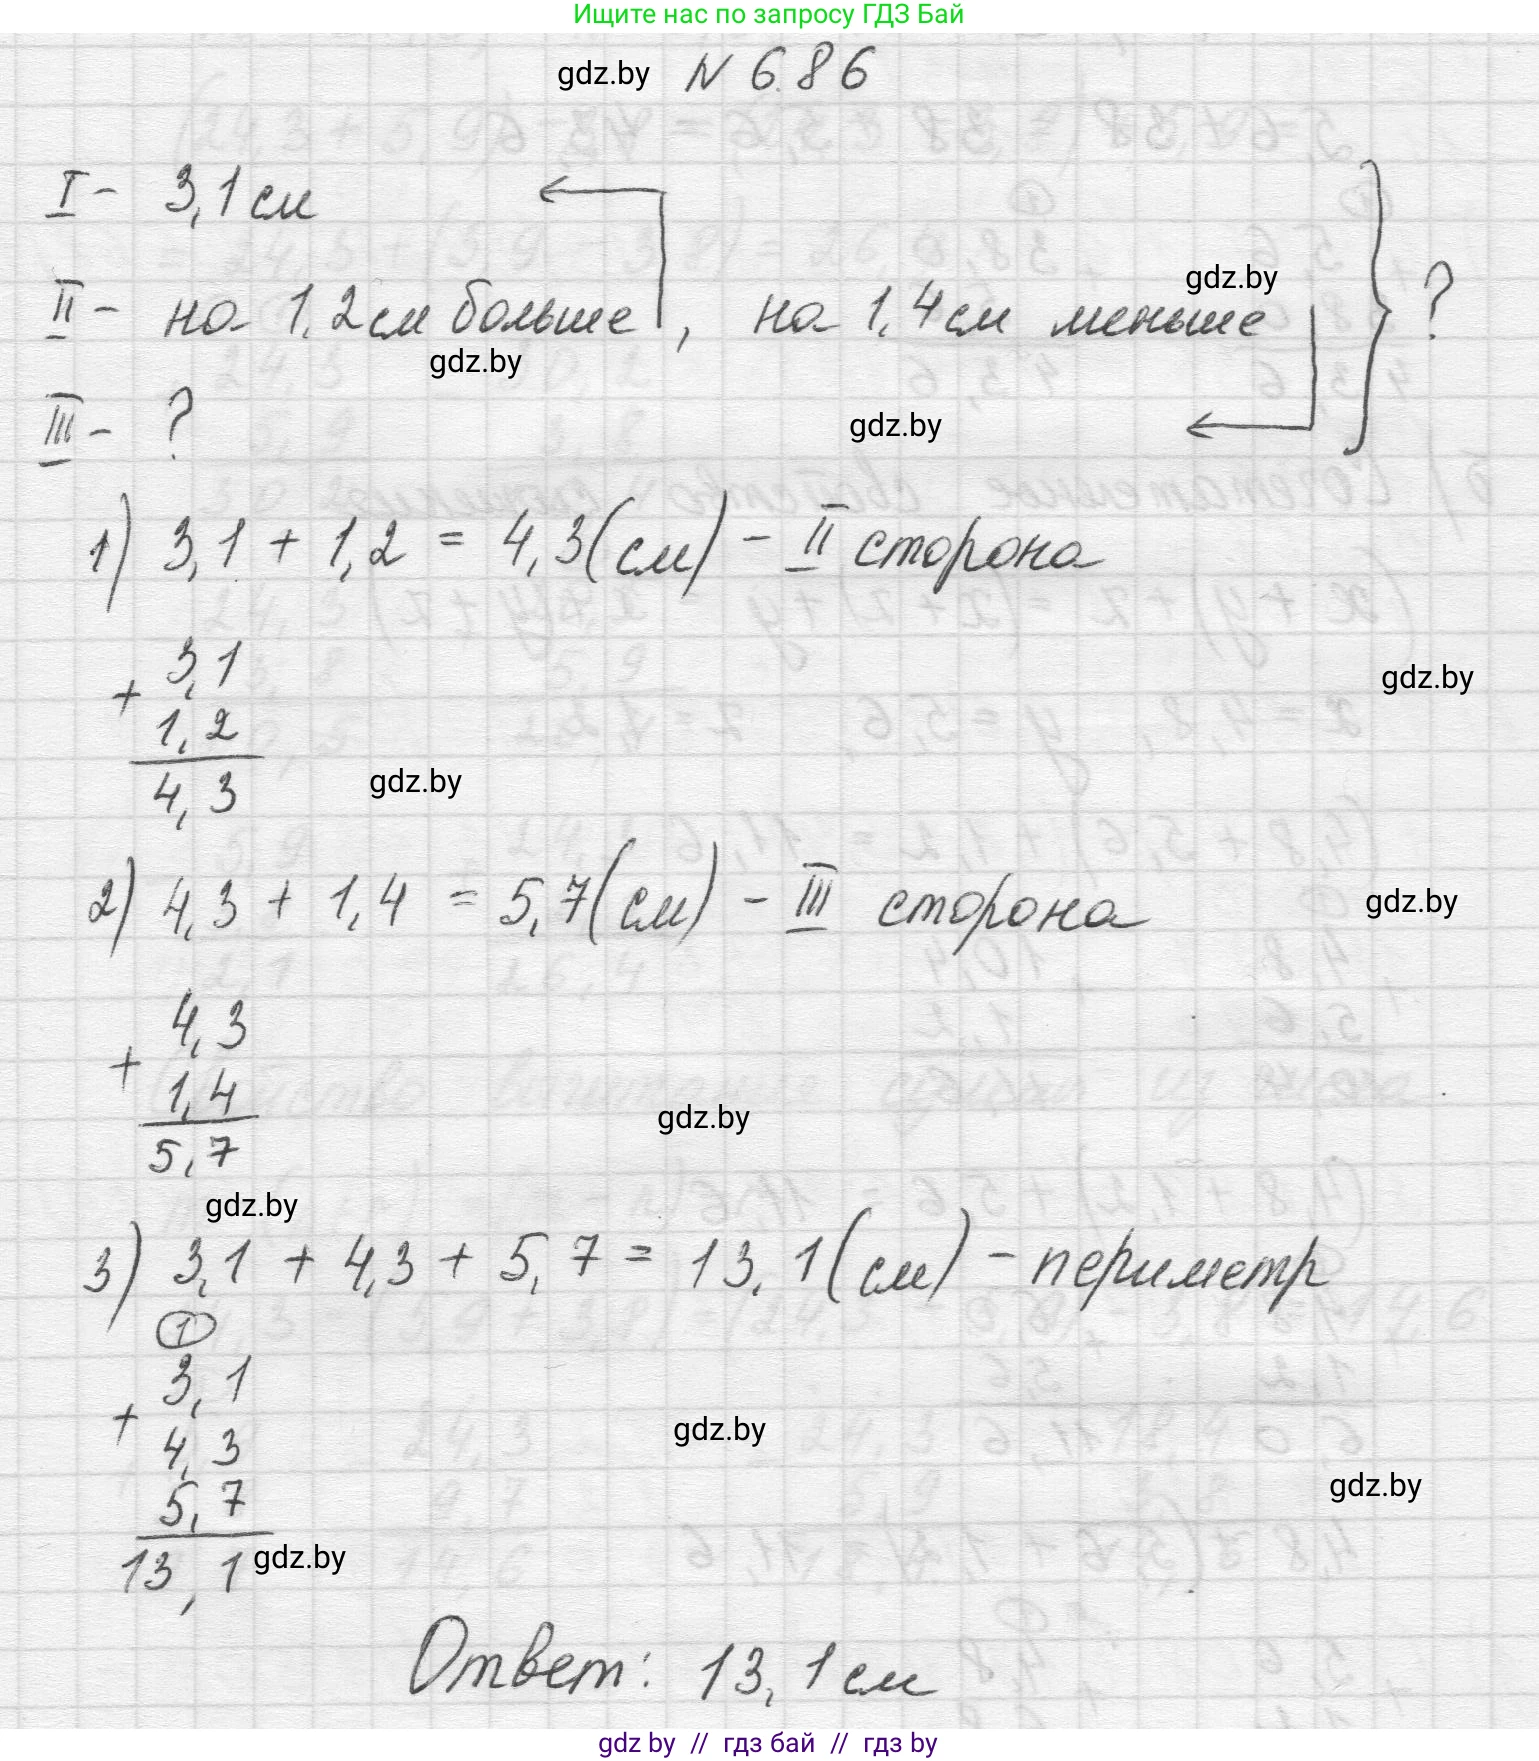 Ищите нас по запросу ГДЗ Бай
gdz.by N 6.86
I - 3,1 см
gdz.by
II - на 1,2 см больше, на 1,4 см меньше } ?
gdz.by
III - ?
gdz.by
1) 3,1 + 1,2 = 4,3 (см) - II сторона
3,1
gdz.by
+
1,2
4,3
gdz.by
2) 4,3 + 1,4 = 5,7 (см) - III сторона
gdz.by
4,3
+
1,4
gdz.by
5,7
gdz.by
3) 3,1 + 4,3 + 5,7 = 13,1 (см) - периметр
1
3,1
+
gdz.by
4,3
gdz.by
5,7
13,1
gdz.by
Ответ: 13,1 см
gdz by // гдз бай // гдз by